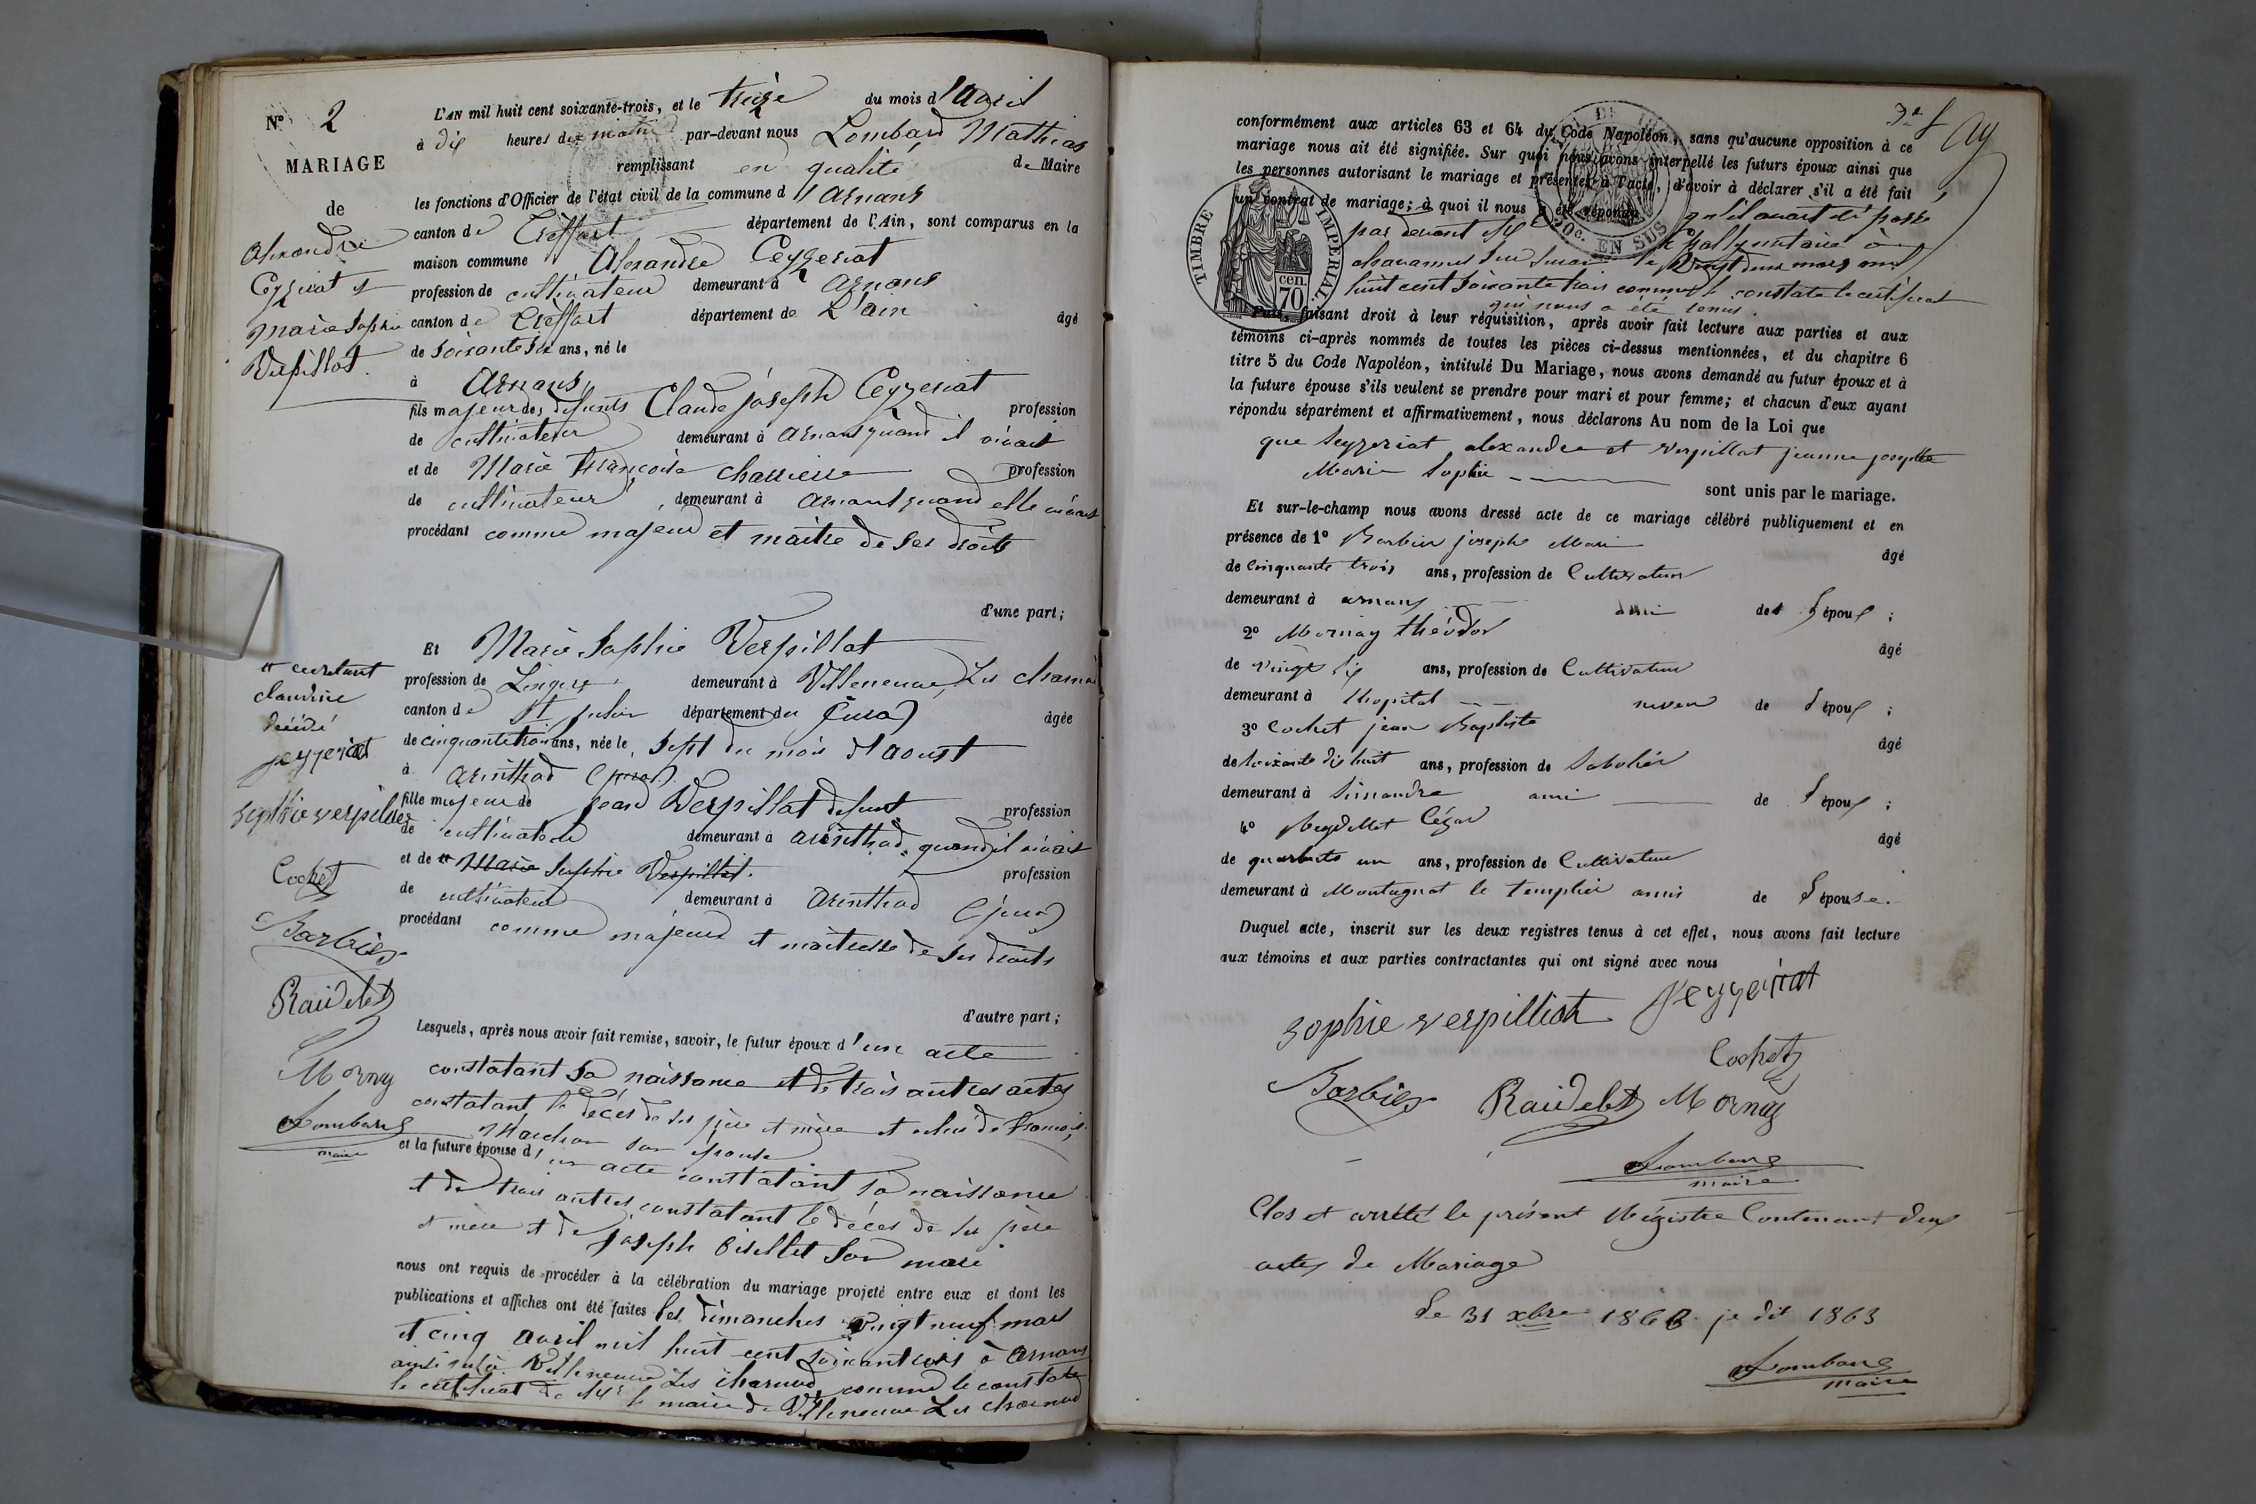 N° 2
MARIAGE
de
Alexandre
Ceyzeriat et
Marie Sophie
Verpillat.
L'AN mil huit cent soixante-trois, et le treize du mois d'Avril
à dix heures du matin par-devant nous Lombard Mathias
remplissant en qualité de Maire
les fonctions d'Officier de l'état civil de la commune d'Arnans
canton de Treffort département de l'Ain, sont comparus en la
maison commune Alexandre Ceyzeriat
profession de cultivateur demeurant à Arnans
canton de Treffort département de L'ain âgé
de soixante six ans, né le
à Arnans
fils majeur des défunts Claude joseph Ceyzeriat profession
de cultivateur demeurant à Arnans quand il vivait
et de Marie Françoise profession
de cultivateur demeurant à Arnans quand elle vivait
procédant comme majeur et maitre de ses droits
d'une part;
Et Marie Sophie Verpillat
profession de Lingere demeurant à Villeneuve Les charnod
canton de St julien département du (jura) âgée
de cinquante trois ans, née le sept du mois d'aoust
à Arinthod (jura)
fille majeur de jean Verpillat defunt profession
de cultivateur demeurant à arinthod quand il vivait
et de Marie Sophie Verpillat. profession
de cultivateur demeurant à Arinthod (jura)
procédant comme majeur et maitresse de ses droits
d'autre part;
claudine
décédé
jeyzeriat
sophie verpillat
Cochet
Barbier
Raidelet
Mornay
Lombard
maire
Lesquels, après nous avoir fait remise, savoir, le futur époux d'un acte
constatant sa naissance et de trois autres actes
constatant le décès de ses père et mère et celui de
son épouse
et la future épouse d'un acte constatant sa naissance
et de trois autres constatant le décès de ses père
et mère et de joseph son mari
nous ont requis de procéder à la célébration du mariage projeté entre eux et dont les
publications et affiches ont été faites les dimanches vingt neuf mars
et cinq avril mil huit cent soixante trois à Arnans
ainsi qu'à Villeneuve Les charnod comme le constate
le certificat de Mr le maire de Villeneuve Les charnod
conformément aux articles 63 et 64 du Code Napoléon, sans qu'aucune opposition à ce
mariage nous ait été signifiée. Sur quoi nous avons interpellé les futurs époux ainsi que
les personnes autorisant le mariage et présentes à l'acte, d'avoir à déclarer s'il a été fait
un contrat de mariage; à quoi il nous a été répondu qu'il avait été passé
par devant notaire à
chavannes sur suran le vingt deux mars mil
huit cent soixante trois comme le constate le certificat
qui nous a été remis.
TIMBRE IMPERIAL
70 cen.
10c. EN SUS
Puis, faisant droit à leur réquisition, après avoir fait lecture aux parties et aux
témoins ci-après nommés de toutes les pièces ci-dessus mentionnées, et du chapitre 6
titre 5 du Code Napoléon, intitulé Du Mariage, nous avons demandé au futur époux et à
la future épouse s'ils veulent se prendre pour mari et pour femme; et chacun d'eux ayant
répondu séparément et affirmativement, nous déclarons Au nom de la Loi que
que seyzeriat alexandre et verpillat jeanne josephte
Marie Sophie sont unis par le mariage.
Et sur-le-champ nous avons dressé acte de ce mariage célébré publiquement et en
présence de 1° Barbier joseph Marie âgé
de cinquante trois ans, profession de Cultivateur
demeurant à arnans ami de l'époux;
2° Mornay théodor âgé
de vingt six ans, profession de Cultivateur
demeurant à lhopital neveu de l'époux;
3° Cochet jean Baptiste âgé
de soixante dix huit ans, profession de Sabotier
demeurant à Simandre ami de l'époux;
4° Reydellet Cézar âgé
de quarante un ans, profession de Cultivateur
demeurant à Montagnat le templier amis de l'épouse.
Duquel acte, inscrit sur les deux registres tenus à cet effet, nous avons fait lecture
aux témoins et aux parties contractantes qui ont signé avec nous
sophie verpilliat jeyzeriat
Cochet
Barbier Raidelet Mornay
Lombard
maire
Clos et arrêté le présent Régistre Contenant deux
actes de Mariage
Le 31 xbre 1860. je dit 1863
Lombard
maire